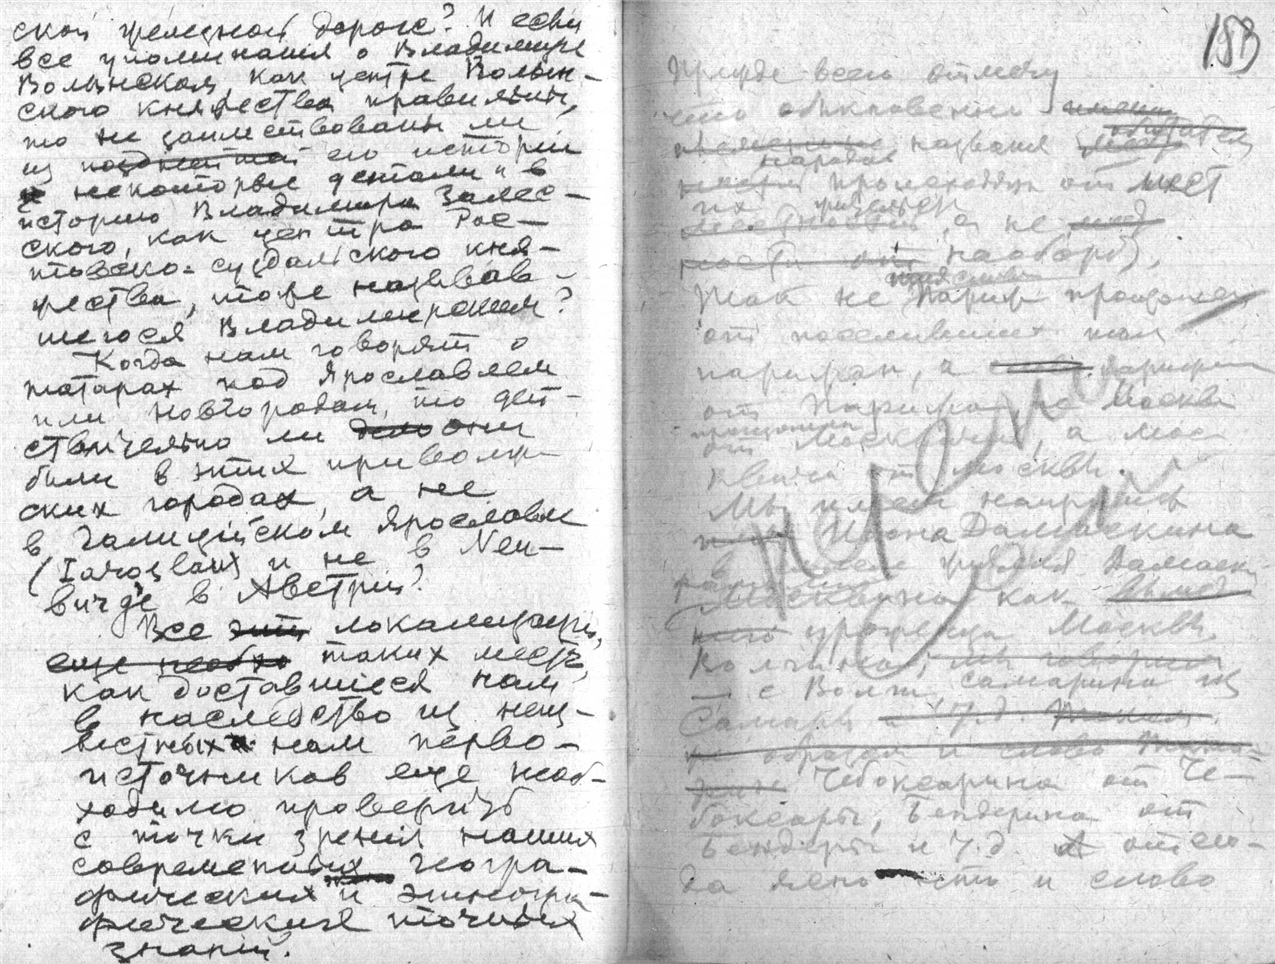 ской железной дороге? И если
все упоминания о Владимире
Волынском как центре Волын-
ского княжества правильны,
то не заимствованы ли
из позднейшей его истории
и некоторые детали в
историю Владимира Залес-
ского, как центра Рос-
товско-суздальского кня-
жества, тоже называв-
шегося Владимирским?
Когда нам говорят о
татарах под Ярославлем
или Новгородом, то дей-
ствительно ли они
были в этих приволж-
ских городах, а не
в Галицийском Ярославле
(Iaroslau) и не в Neu-
в Австрии?
Все локализации,
таких мест,
как доставшиеся нам
в наследство из неиз-
вестных нам перво-
источников еще необ-
ходимо проверить
с точки зрения наших
современных геогра-
фических и этногра-
фических точных
знаний.
183
Прежде всего отмечу
что обыкновенно
названия
народов происходят от мест
их
а не
наоборот.
Так не Париж произошел
от поселившихся там
парижан, а парижане
от Парижа, не Москва
от Москвичей, а мос-
квичи от Москвы.
Мы имеем например
Иоанна Дамаскина
Дамаска
Москвина как
уроженца Москвы,
Волгина
с Волги, Самарина из
Самары и т.д.
образом и слово
Чебоксарина от Че-
боксары, Бендерина от
Бендеры и т.д. отсю-
да ясно что и слово